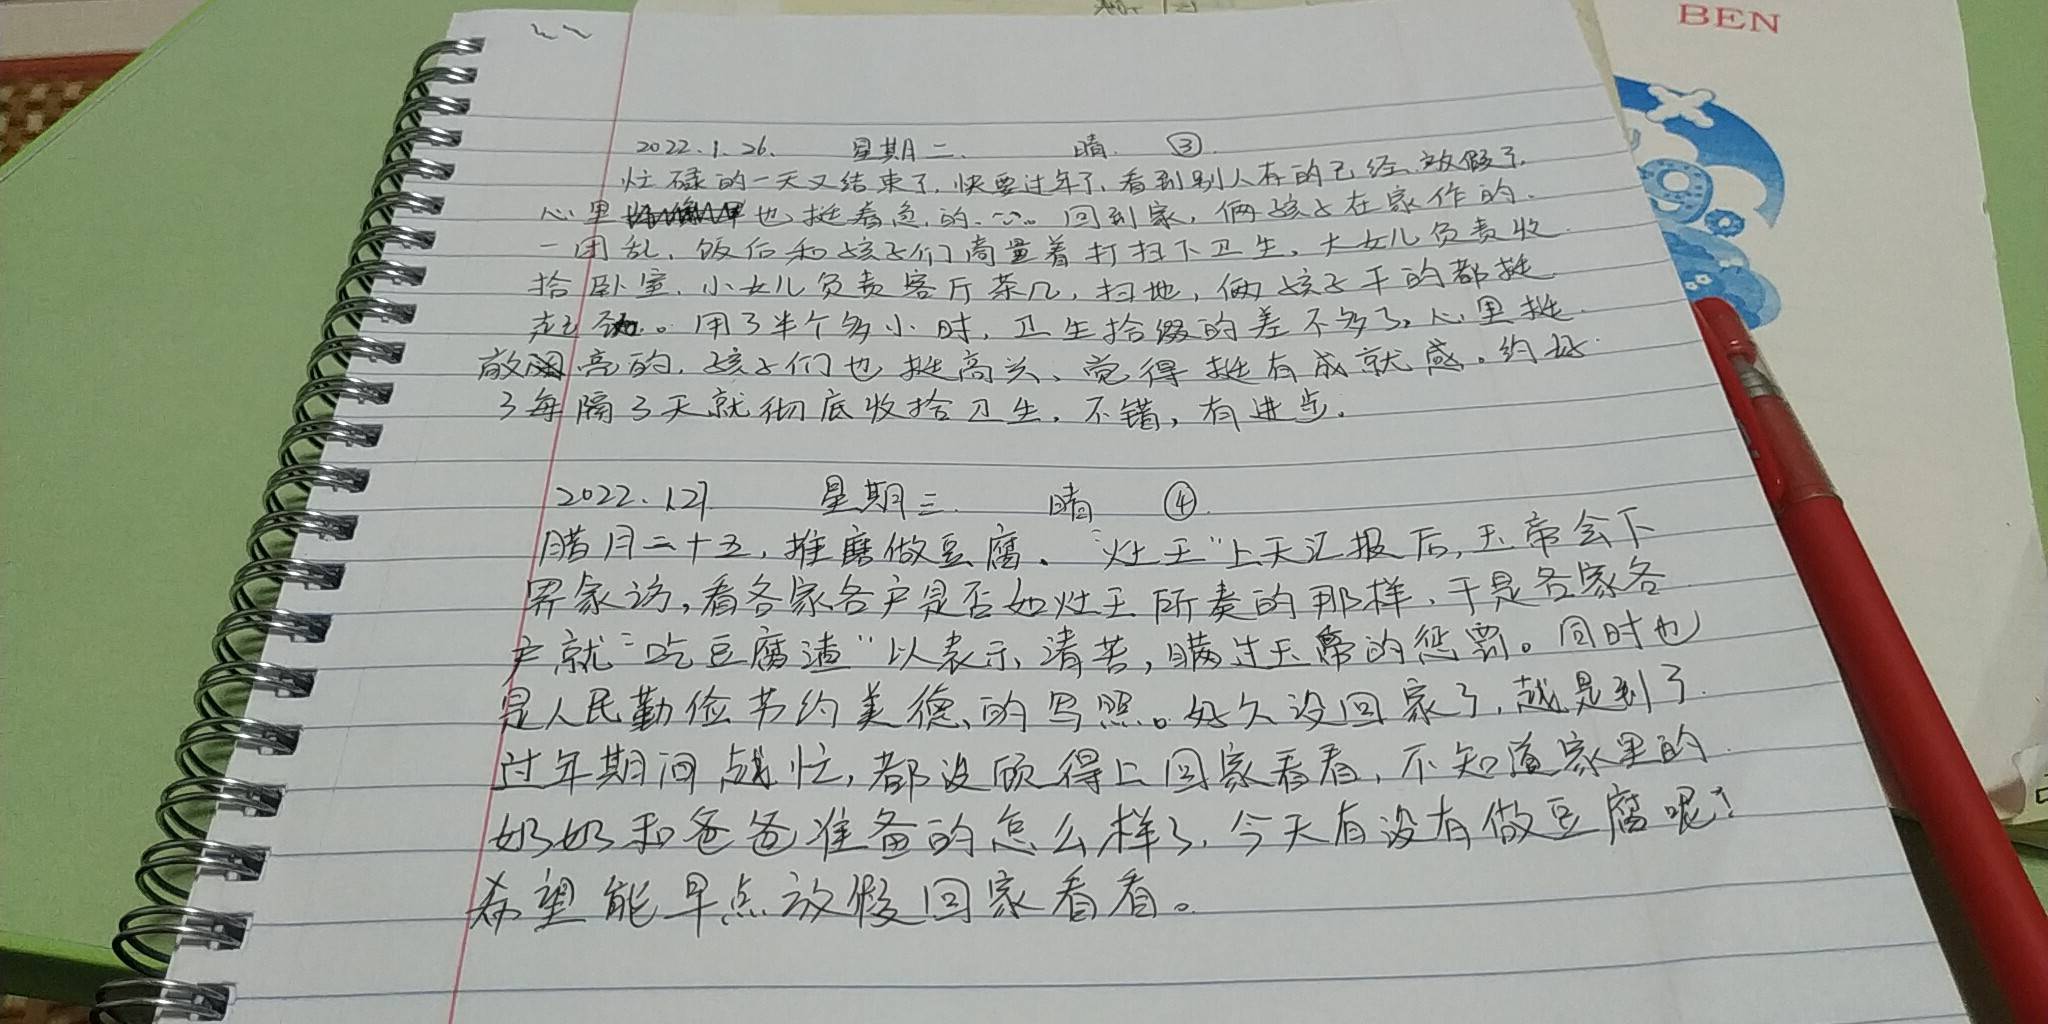 BEN
2022.1.26. 星期二. 晴. ③.
忙碌的一天又结束了.快要过年了.看到别人有的已经放假了.
心里也挺着急.的.…。回到家,俩孩子在家作的.
一团乱,饭后和孩子们商量着打扫下卫生,大女儿负责收
拾卧室,小女儿负责客厅茶几,扫地,俩孩子干的都挺
起劲。用了半个多小时,卫生拾缀的差不多了,心里挺
敞亮的,孩子们也挺高兴、觉得挺有成就感。约好
了每隔3天就彻底收拾卫生,不错,有进步.
2022.1.27 星期三. 晴 ④
腊月二十五,推磨做豆腐.“灶王”上天汇报后,玉帝会下
界家访,看各家各户是否如灶王所奏的那样,于是各家各
户就“吃豆腐渣”以表示清苦,瞒过玉帝的惩罚。同时也
是人民勤俭节约美德的写照。好久没回家了,越是到了
过年期间越忙,都没顾得上回家看看,不知道家里的
奶奶和爸爸准备的怎么样了,今天有没有做豆腐呢!
希望能早点放假回家看看。